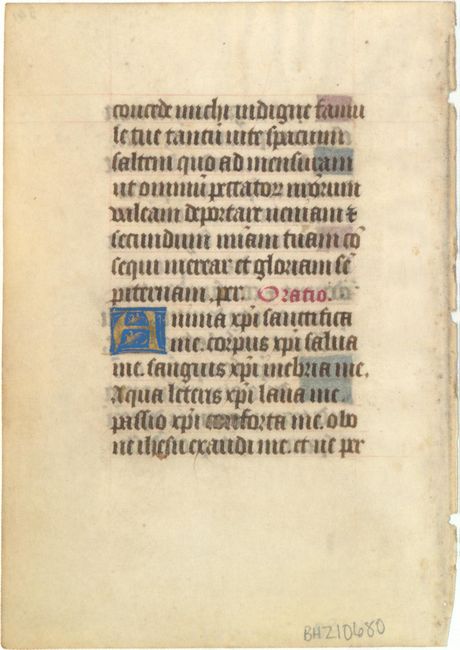 concede michi indigne famu
le tue tantū uite spacium
saltem quo ad mensuram
ut omniū peccator̄ mōrum
valeam deportare ueniam ⁊
secundum mīam tuam cō
sequi merear et gloriam sē
piternam. per. Oratio.
Anima xp̄i sanctifica
me. corpus xp̄i salua
me. sanguis xp̄i inebria me.
Aqua leteris xp̄i laua me.
passio xp̄i conforta me. o bo
ne ihesu exaudi me. et ne per
BHZ10680